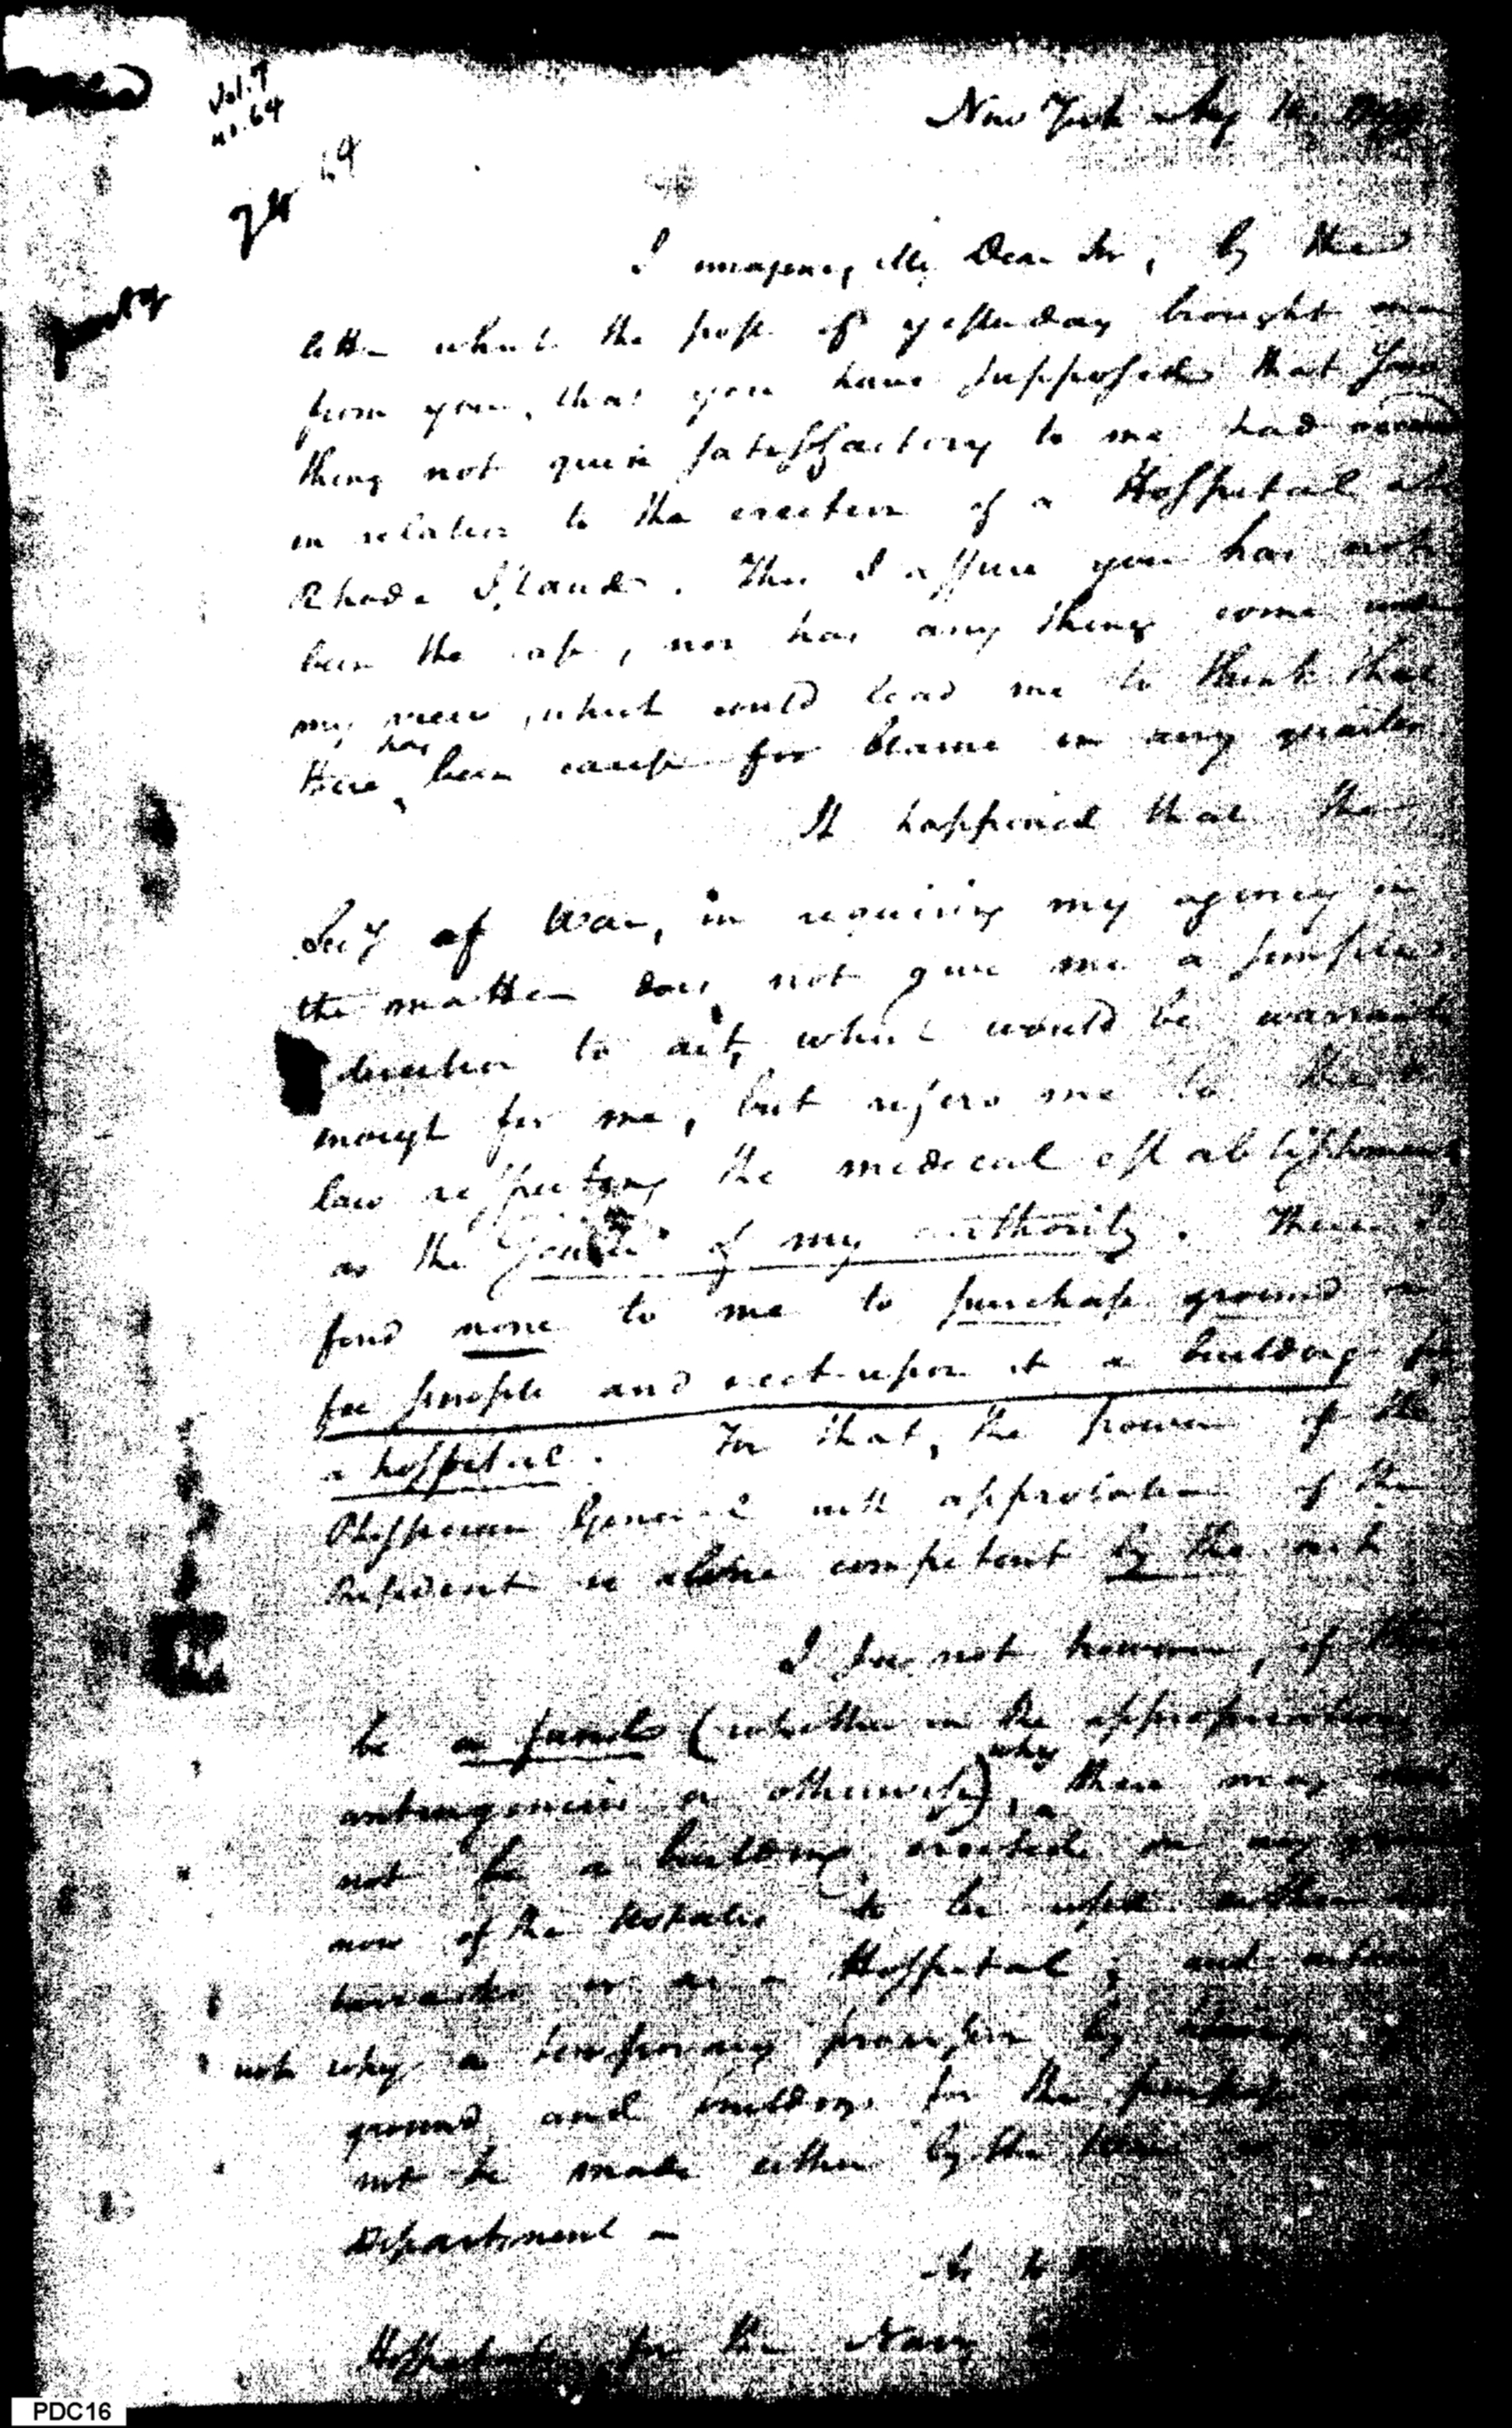 Vol. 7
no. 64
64
New York Aug
I imagine, My Dear Sir, by the
letter which the post of yesterday brought me
from you, that you have supposed that some
thing not quite satisfactory to me had
in relation to the erection of a Hospital at
Rhode Island. This I assure you has not
been the case, nor has any thing come under
my view, which could lead me to think that
there has been cause for blame in any quarter
It happened that the
Secy of War, in requiring my agency in
the matter does not give me a simple
direction to act, which would be warrant
enough for me, but refers me to the
law respecting the medical establishment
as the of my authority. There I
find none to me to purchase ground in
fee simple and erect upon it a building for
a hospital. For that, the power of the
Physician General with approbation of the
President is alone competent by the act
I see not however, if there
be a fund (whether in the appropriation
contingencies or otherwise), why there may
not be a building erected on any ground
now of the to be used either as
barracks or as a Hospital; and
not why a temporary provision by
ground and buildings for the purpose may
not be made either by the
Department —
As to
Hospital for the Navy
PDC16